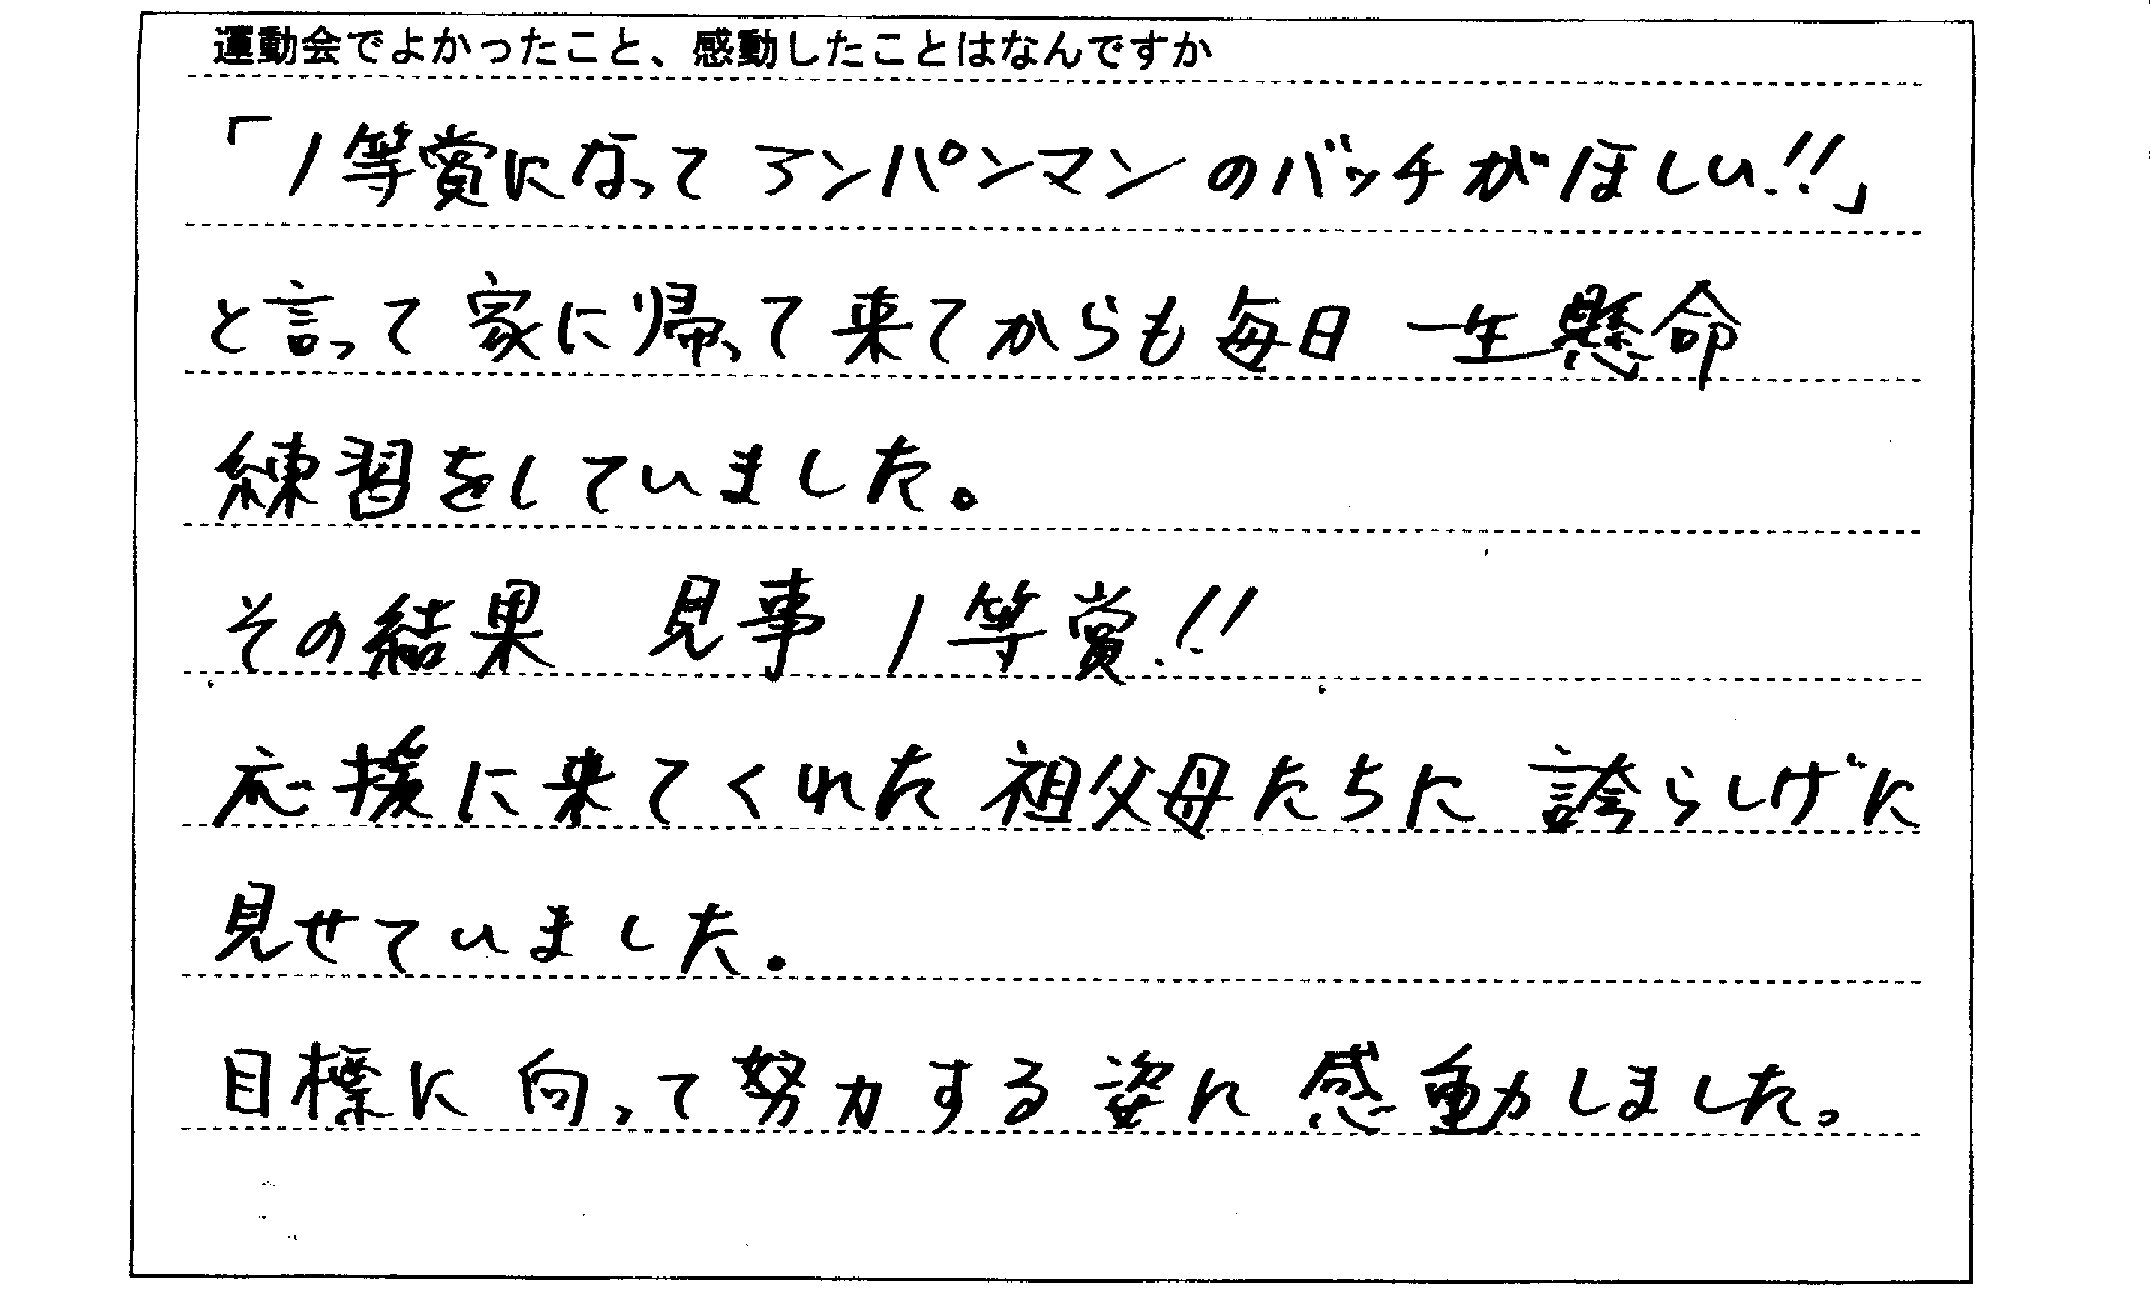 運動会でよかったこと、感動したことはなんですか
「1等賞になってアンパンマンのバッチがほしい!!」
と言って家に帰って来てからも毎日一生懸命
練習をしていました。
その結果　見事1等賞!!
応援に来てくれた祖父母たちに誇らしげに
見せていました。
目標に向って努力する姿に感動しました。